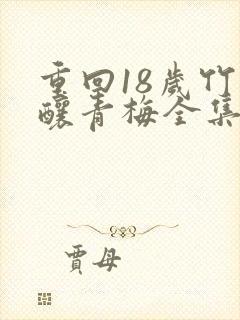 重回18歲竹
釀青梅全集
賈母